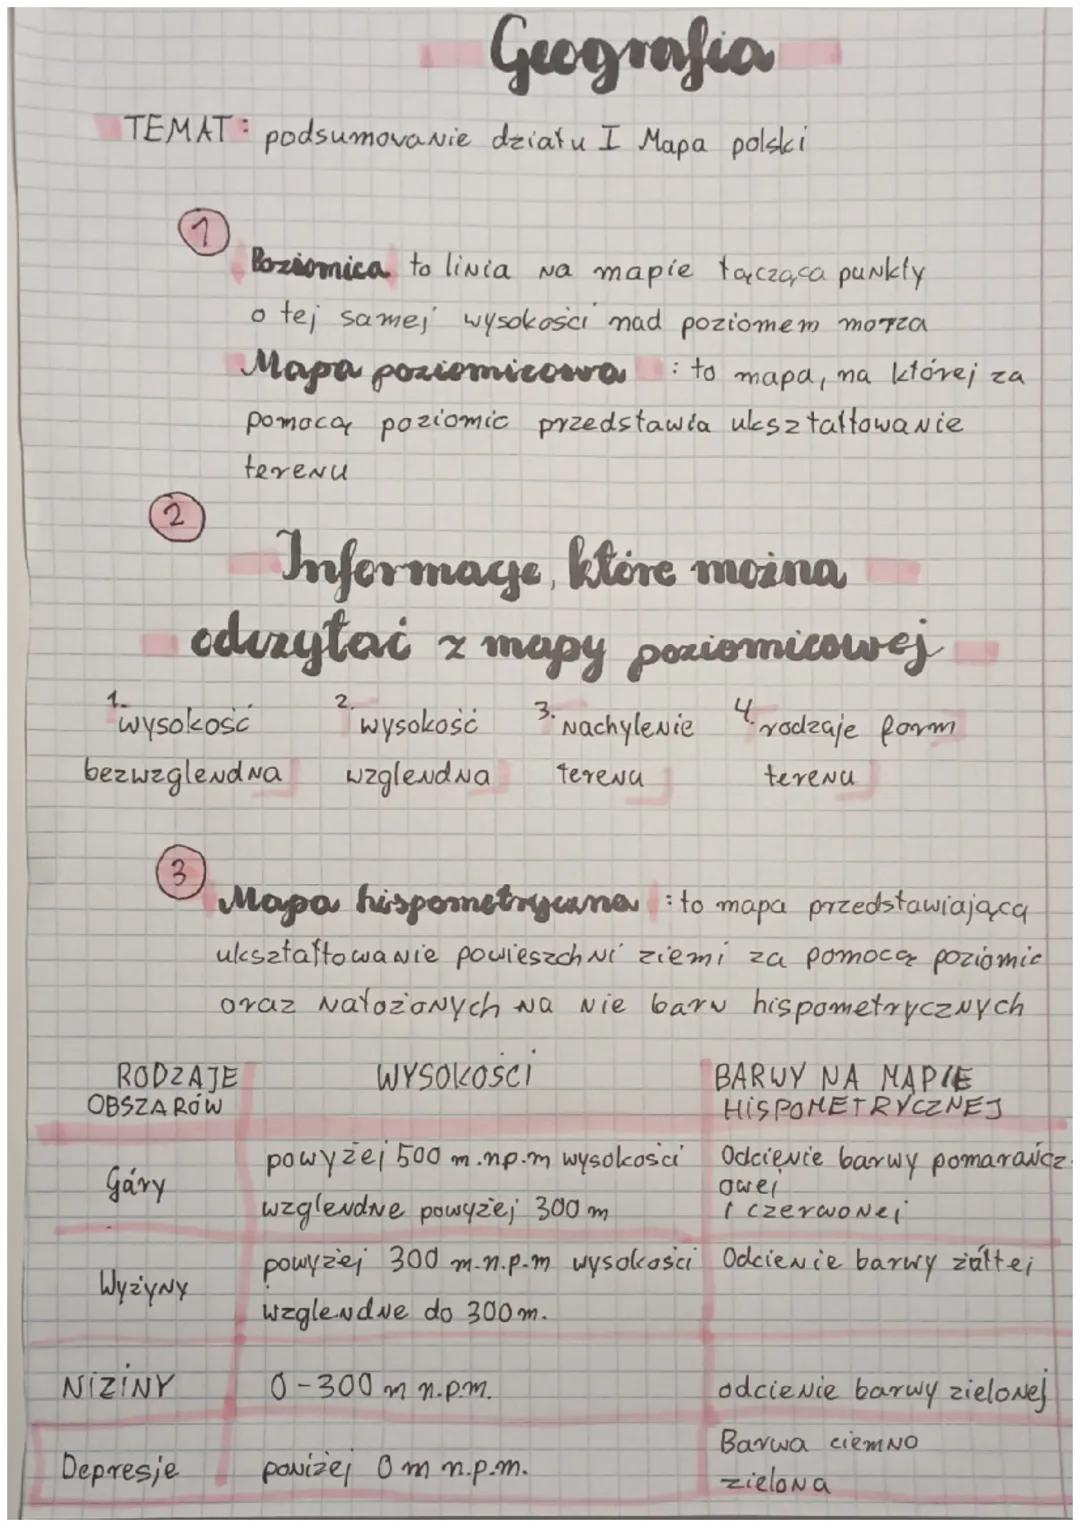 Geografia
TEMAT: podsumovanie działu I Mapa polski
1
Poziomica to linia na mapie łącząca punkty
o tej samej wysokości nad poziomem morza
Mapa poziomicowa : to mapa, na której za
pomocą poziomic przedstawia ukształtowanie
terenu
2
Informacje, które można
odczytać z mapy poziomicowej
1. wysokość 2. wysokość 3. nachylenie 4. rodzaje form
bezwzglendna wzglendna terenu terenu
3
Mapa hispometryczna : to mapa przedstawiającą
ukształtowanie powieszchni ziemi za pomocą poziomic
oraz natożonych na nie barw hispometrycznych
RODZAJE WYSOKOŚCI BARWY NA MAPIE
OBSZARÓW HISPOMETRYCZNEJ
Góry powyżej 500 m.np.m wysokości Odcienie barwy pomarańcz-
owej
wzglendne powyżej 300 m i czerwonej
Wyżyny powyżej 300 m.n.p.m wysokości Odcienie barwy żółtej
wzglendne do 300m.
NIZINY 0-300 m n.p.m. odcienie barwy zielonej
Depresje poniżej 0 m n.p.m. Barwa ciemno
zielona